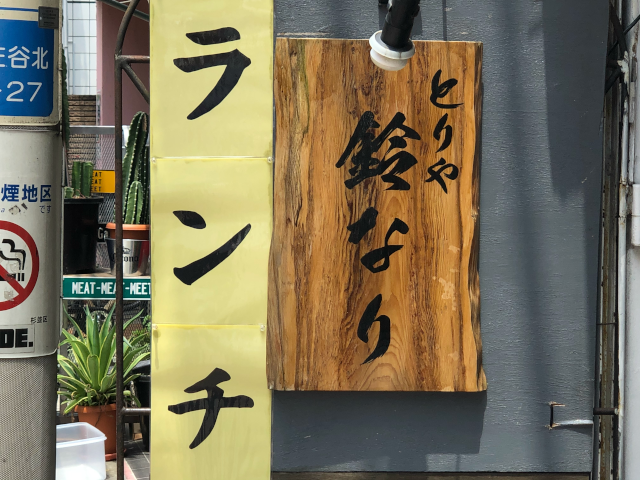 とりや
鈴なり
ランチ
谷北
-27
煙地区
です
杉並区
DE.
MEAT-MEAT-MEET